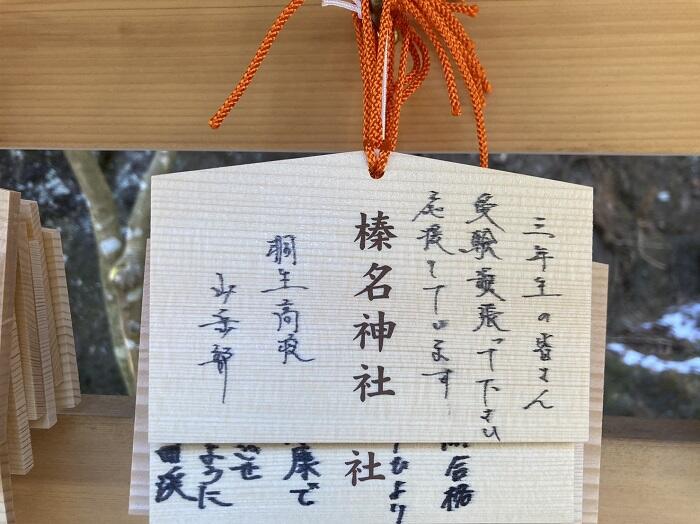 三年生の皆さん
受験頑張って下さい
応援しています
榛名神社
桐生高校
山岳部
合格
ひより
社
康で
ように